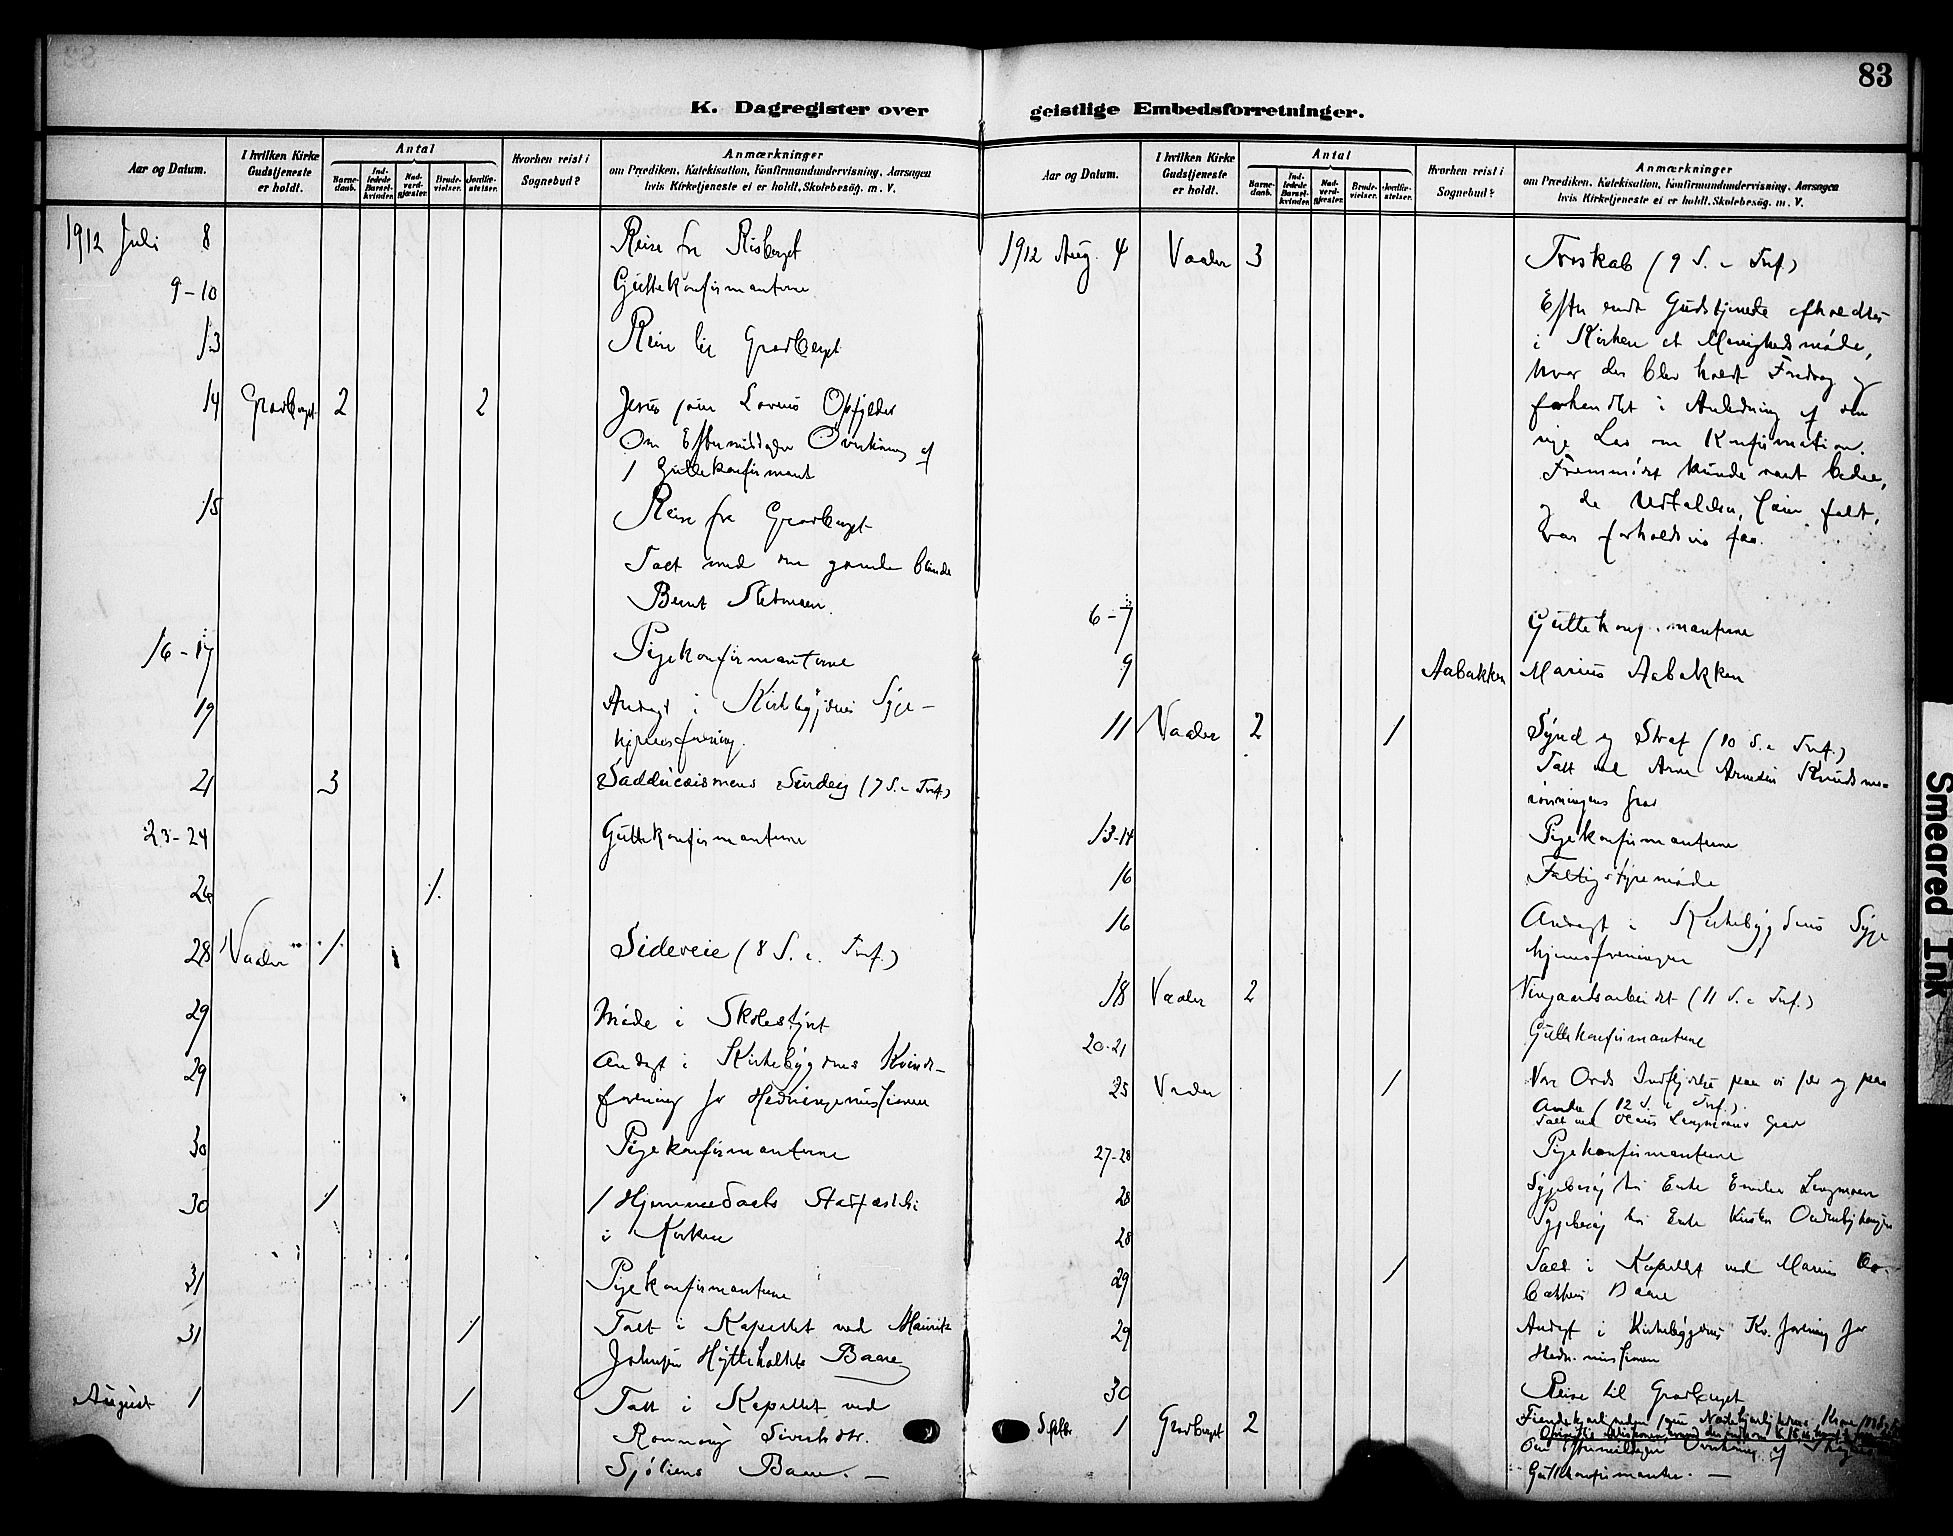 83
K. Dagregister over geistlige Embedsforretninger.
Aar og Datum.
I hvilken Kirke Gudstjeneste er holdt.
Antal
Barnedaab.
Indledede Barselkvinder.
Nadverdgjæster.
Brudevielser.
Jordfæstelser.
Hvorhen reist i Sognebud?
Anmærkninger
om Prædiken, Katekisation, Konfirmandundervisning, Aarsagen
hvis Kirketjeneste ei er holdt, Skolebesög. m. V.
1912 Juli 8 Reise fra Risberget
9-10 Guttekonfirmanterne
13 Reise til Gravberget
14 Gravberget 2 2 Jesus som Lovens Opfylder
Om Eftermiddagen Overhöring af
1 Guttekonfirmant
15 Reise fra Gravberget
Talt med den gamle blinde
Bernt
16-17 Pigekonfirmanterne
19 Andagt i Kirkebygdens Syge-
hjemsforening.
21 3 Sadducæismens Surdeig (7 S. e. Tref.)
23-24 Guttekonfirmanterne
26 1
28 Vaaler 1 Sideveie (8 S. e. Tref.)
29 Möde i Skolestyret
29 Andagt i Kirkebygdens Kvinde-
forening for Hedningemissionen
30 Pigekonfirmanterne
30 1 1 Hjemmedaabs Stadfæstelse
i Kirken
31 Pigekonfirmanterne
31 1 Talt i Kapellet ved Mauritz
Johnsen Hytteholtets Baare
August 1 1 Talt i Kapellet ved
Rönnaug Sivertsdtr.
Sjöliens Baare. —
Aar og Datum.
I hvilken Kirke Gudstjeneste er holdt.
Antal
Barnedaab.
Indledede Barselkvinder.
Nadverdgjæster.
Brudevielser.
Jordfæstelser.
Hvorhen reist i Sognebud?
Anmærkninger
om Prædiken, Katekisation, Konfirmandundervisning, Aarsagen
hvis Kirketjeneste ei er holdt, Skolebesög. m. V.
1912 Aug. 4 Vaaler 3 Troskab (9 S. e. Tref.)
Efter endt Gudstjeneste afholdtes
i Kirken et Menighedsmöde,
hvor der blev holdt Foredrag og
forhandlet i Anledning af den
nye Lov om Konfirmation.
Fremmödet kunde været bedre,
og de Udtalelser, som faldt,
var forholdsvis faa.
6-7 Guttekonfirmanterne
9 Aabakken Marius Aabakken
11 Vaaler 2 1 Synd og Straf (10 S. e. Tref.)
Talt ved Arne Knudsmo-
rönningens Grav
13-14 Pigekonfirmanterne
16 Fattigstyremöde
16 Andagt i Kirkebygdens Syge
hjemsforeningen
18 Vaaler 2 Vingaardsarbeidet (11 S. e. Tref.)
20-21 Guttekonfirmanterne
25 Vaaler 1 Vore Ords Indflydelse paa os selv og paa
Andre (12 S. e. Tref.).
Talt ved Grav
27-28 Pigekonfirmanterne
28 Sygebesög hos Enke Emilie
28 Sygebesög hos Enke
29 1 Talt i Kapellet ved Marius Aa-
bakkens Baare
29 Andagt i Kirkebygdens Kv. forening for
Hedn. missionen
30 Reise til Gravberget
Septbr 1 Gravberget 2
Om Eftermiddagen Overhöring af
Guttekonfirmanter. —
Smeared Ink